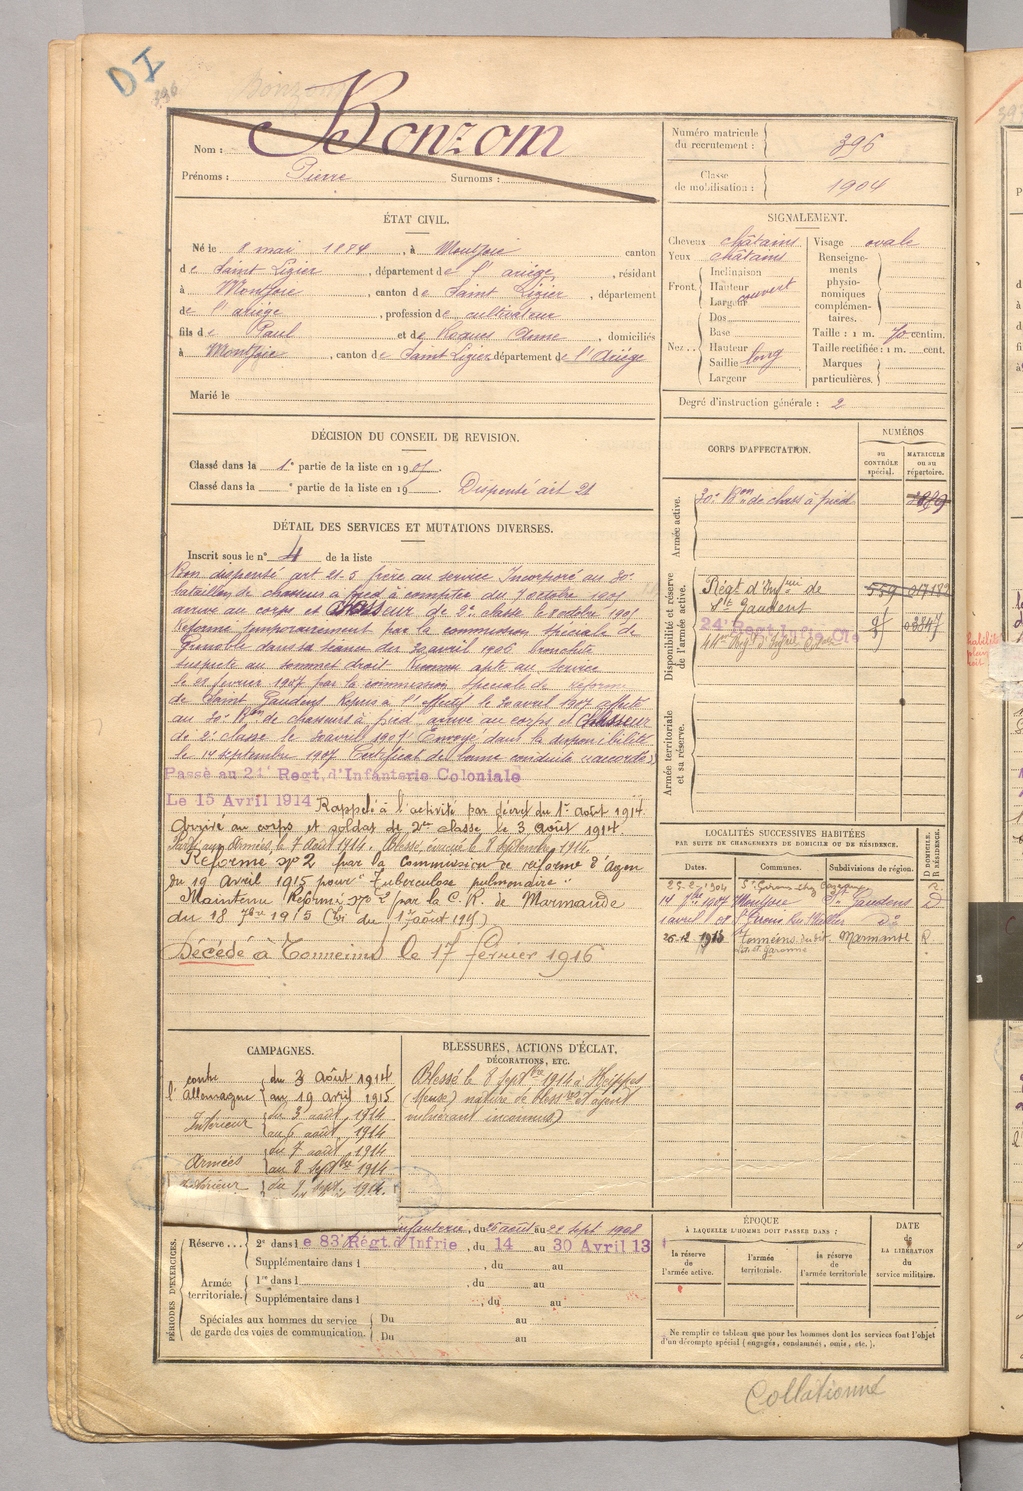 DI
396
Bonzom
Nom : Bonzom
Prénoms : Pierre Surnoms :
Numéro matricule du recrutement : 396
Classe de mobilisation : 1904
ÉTAT CIVIL.
Né le 8 mai 1884, à Montjoie canton
de Saint Lizier, département de l'ariège, résidant
à Montjoie, canton de Saint Lizier, département
de l'ariège, profession de cultivateur
fils de Paul et de Roques Anne, domiciliés
à Montjoie, canton de Saint Lizier département de l'Ariège
Marié le
SIGNALEMENT.
Cheveux châtains
Yeux châtains
Front. Inclinaison
Hauteur
Largeur couvert
Nez.. Dos
Base
Hauteur
Saillie long
Largeur
Visage ovale
Renseignements physionomiques complémentaires.
Taille : 1 m. 70 centim.
Taille rectifiée : 1 m. cent.
Marques particulières.
Degré d'instruction générale : 2
DÉCISION DU CONSEIL DE REVISION.
Classé dans la 1e partie de la liste en 1905.
Classé dans la e partie de la liste en 19 . Dispensé art 21
DÉTAIL DES SERVICES ET MUTATIONS DIVERSES.
Inscrit sous le n° 4 de la liste
Bon dispensé art 21-5 frère au service Incorporé au 30e
bataillon de chasseurs à pied à compter du 7 octobre 1905
arrivé au corps et chasseur de 2e classe le 8 octobre 1905
Réformé temporairement par la commission spéciale de
Grenoble dans sa séance du 30 avril 1906 bronchite
suspecte au sommet droit Reconnu apte au service
le 28 février 1907 par la commission spéciale de réforme
de Saint Gaudens Repris à l'effectif le 20 avril 1907 affecté
au 30e Bon de chasseurs à pied, arrivé au corps et chasseur
de 2e classe le 20 avril 1907 Envoyé dans la disponibilité
le 14 septembre 1907 Certificat de bonne conduite "accordé"
Passé au 24e Regt. d'Infanterie Coloniale
Le 15 Avril 1914 Rappelé à l'activité par décret du 1er août 1914.
Arrivé au corps et soldat de 2me classe le 3 août 1914.
Parti aux Armées, le 7 août 1914. Blessé, évacué le 8 septembre 1914.
Réformé n° 2 par la Commission de réforme d'Agen
du 19 Avril 1915 pour "Tuberculose pulmonaire"
Maintenu Réformé n° 2 par la C. R. de Marmande
du 18 7bre 1915 ( du 1er août 1915)
Décédé à Tonneins le 17 février 1916
CORPS D'AFFECTATION.
NUMÉROS
au CONTRÔLE spécial.
MATRICULE ou au répertoire.
Armée active.
30e Bon de chass à pied
Disponibilité et réserve de l'armée active.
Régt d'Infrie de
St Gaudens
559 017182
24e Regt Infie Cle
97 0347
Armée territoriale et sa réserve.
LOCALITÉS SUCCESSIVES HABITÉES
PAR SUITE DE CHANGEMENTS DE DOMICILE OU DE RÉSIDENCE.
Dates.
Communes.
Subdivisions de région.
D DOMICILE. R RÉSIDENCE.
14 7bre 1907 Montjoie St Gaudens D
1 avril 08 St Girons do
26-12 1915 Tonneins Marmande R.
Lot et Garonne
CAMPAGNES.
contre l'Allemagne du 3 Août 1914
au 19 avril 1915
Intérieur du 3 août 1914
au 6 août 1914
Armées du 7 août 1914
au 8 septbre 1914
Intérieur du 9 sept. 1914
BLESSURES, ACTIONS D'ÉCLAT,
DÉCORATIONS, ETC.
Blessé le 8 septbre 1914 à Heippes
(Meuse) nature de blessure et agent
vulnérant inconnus)
PÉRIODES D'EXERCICES.
infanterie, du 26 août au 22 sept 1908
Réserve... 2e dans le 83e Régt. d'Infrie, du 14 au 30 Avril 13
Supplémentaire dans l , du au
Armée territoriale. 1re dans l , du au
Supplémentaire dans l , du au
Spéciales aux hommes du service de garde des voies de communication. Du au
Du au
ÉPOQUE
À LAQUELLE L'HOMME DOIT PASSER DANS :
la réserve de l'armée active.
l'armée territoriale.
la réserve de l'armée territoriale
DATE
de
LA LIBÉRATION
du
service militaire.
Ne remplir ce tableau que pour les hommes dont les services font l'objet
d'un décompte spécial (engagés, condamnés, omis, etc.).
Collationné